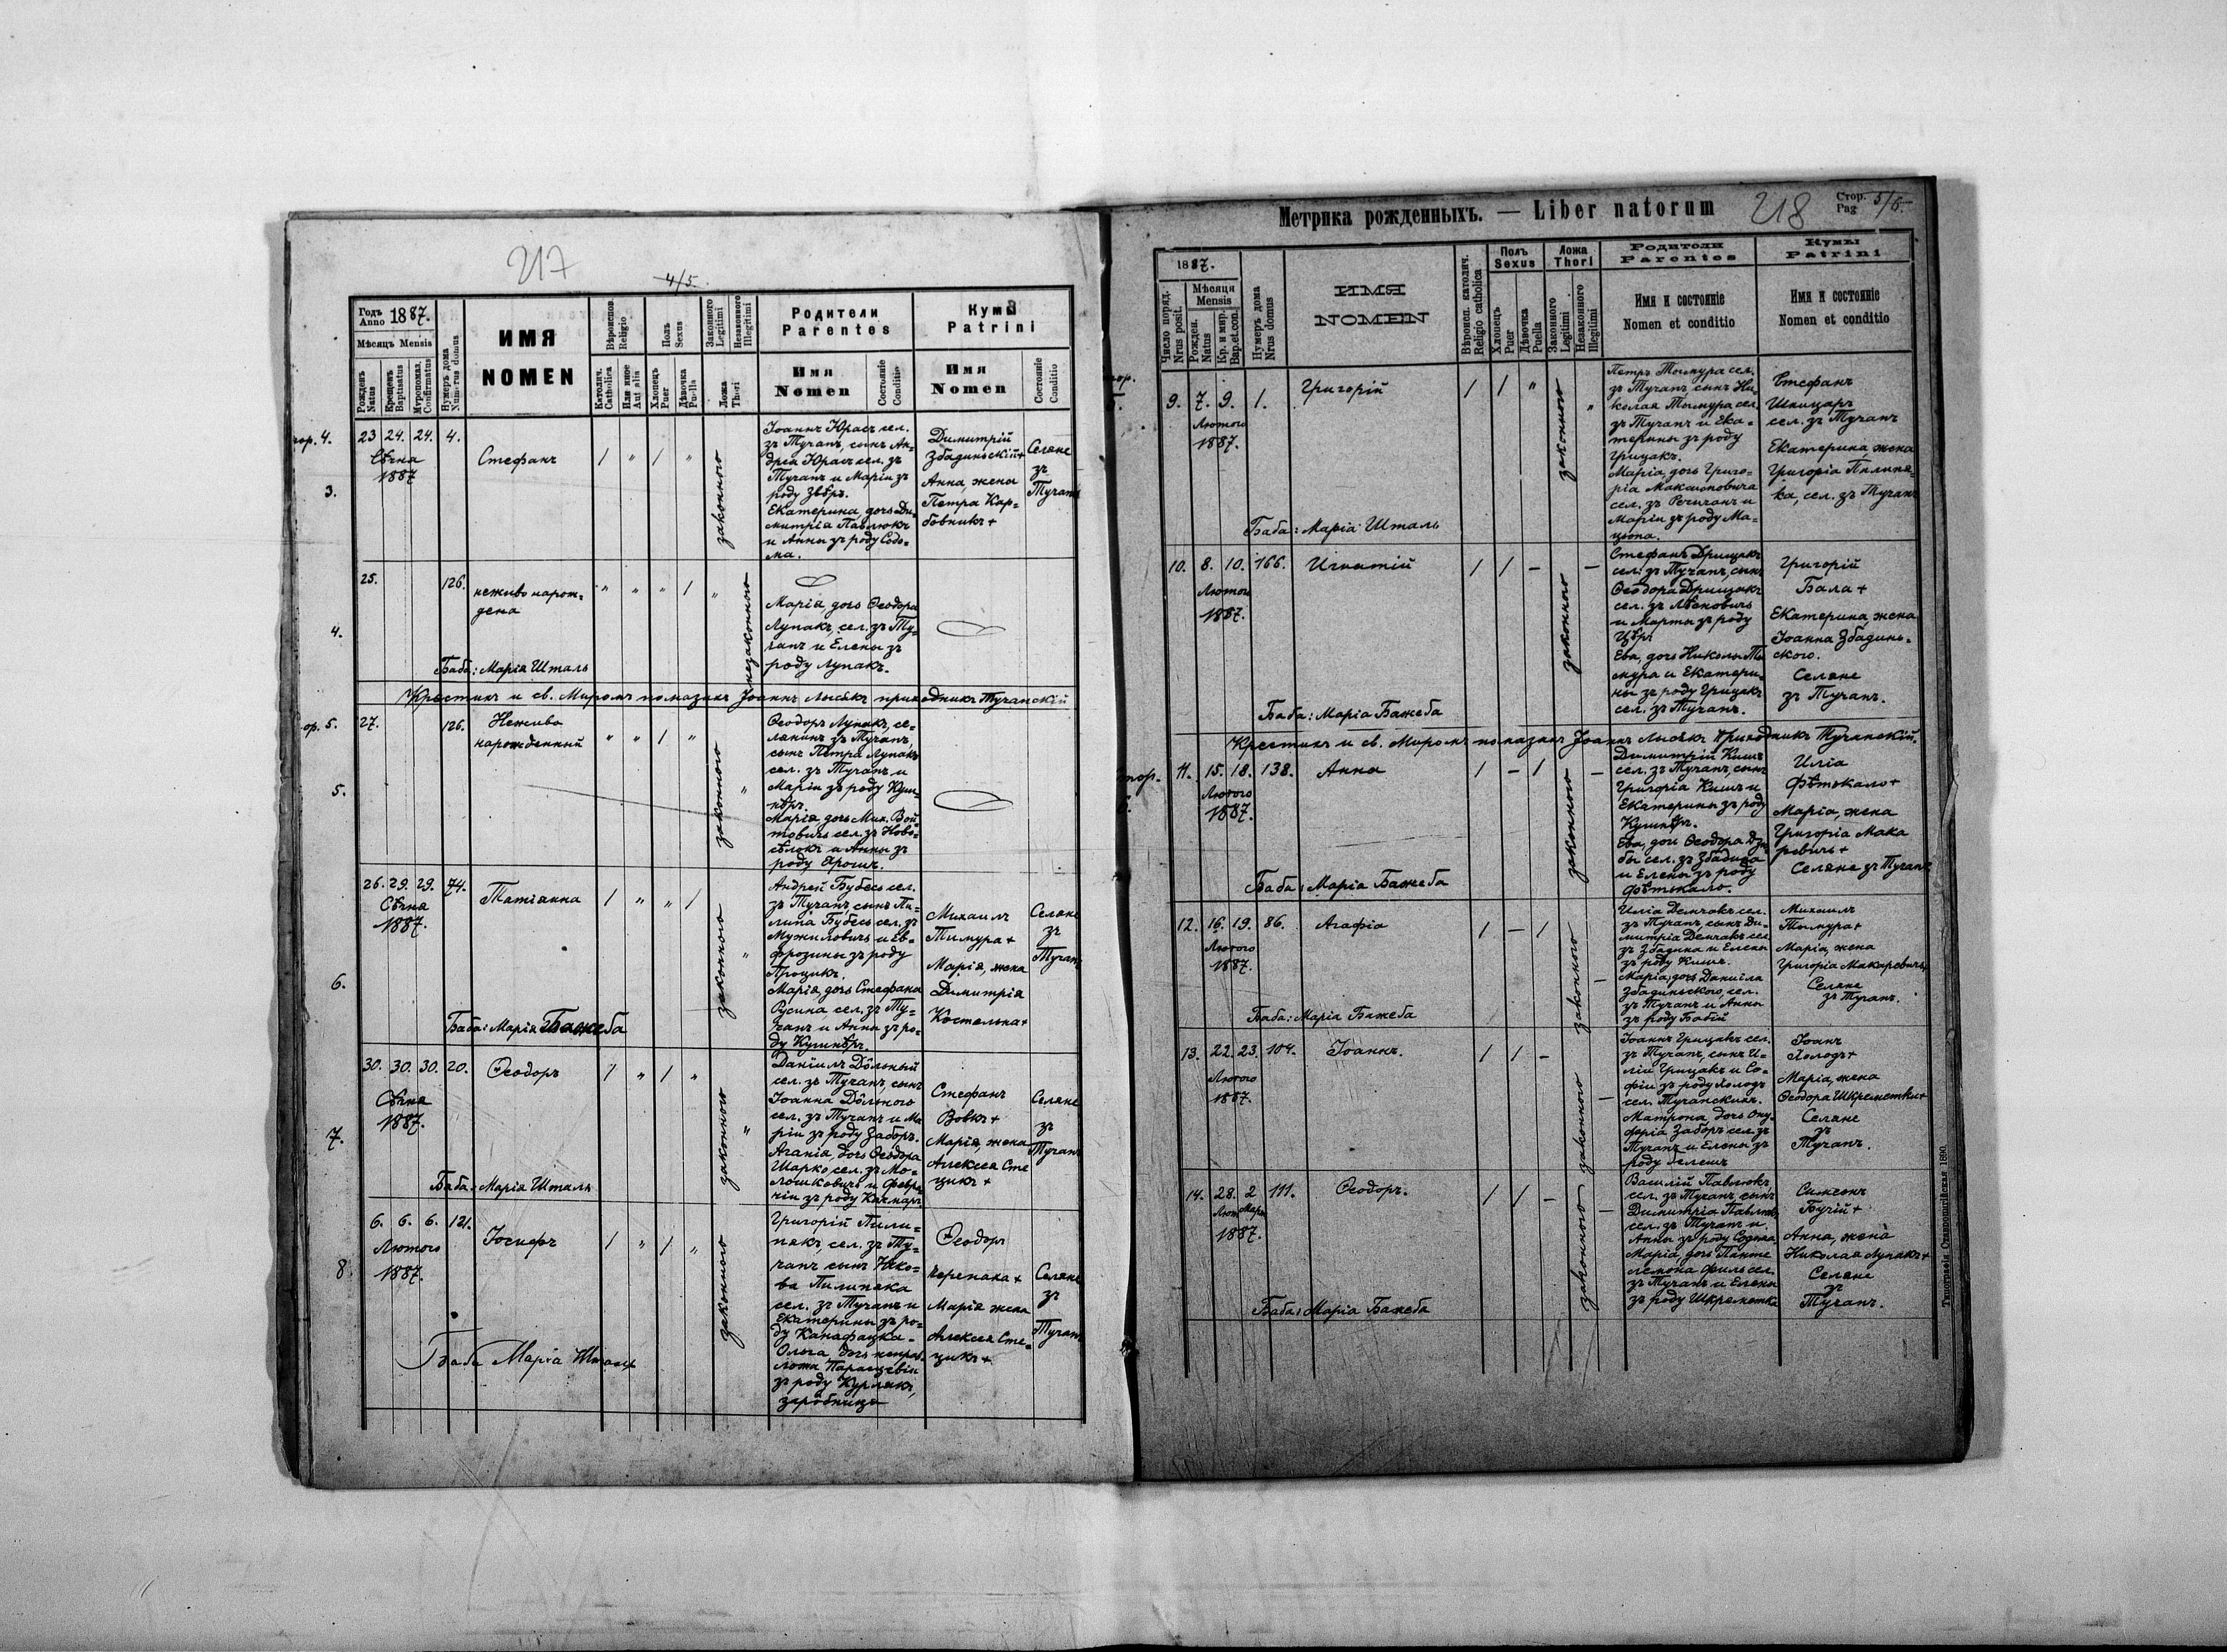 217
4/5.
Годъ Anno 1887.
Мѣсяцъ Mensis
Рожденъ Natus
Крещенъ Baptisatus
Мѵропомаз. Confirmatus
Нумеръ дома Numerus domus
ИМЯ
NOMEN
Вѣроиспов. Religio
Католич. Catholica
Или иное Aut alia
Полъ Sexus
Хлопецъ Puer
Дѣвочка Puella
Законного Legitimi
Незаконного Illegitimi
Ложа Thori
Родители
Parentes
Имя
Nomen
Состояніе Conditio
Кумы
Patrini
Имя
Nomen
Состояніе Conditio
3.
23 24. 24. 4.
Сѣчня
1887
Стефанъ
законного
Іоаннъ Юрасъ сел.
зъ Тучапъ, сынъ Ан-
дрея Юрасъ сел. зъ
Тучапъ и Маріи зъ
роду Звѣръ.
Екатерина, дочь Ди-
митрія Павлюкъ
и Анны зъ роду Содо-
ма.
Димитрій
Збадиньскій+
Анна, жена
Петра Кар-
бовникъ +
Селяне
зъ
Тучапъ
4.
25. 126.
неживо нарож-
дена
незаконного
Марія, дочь Ѳеодора
Лупакъ, сел. зъ Ту-
чапъ и Елены зъ
роду Лупакъ.
Баба: Марія Шталь
Крестилъ и св. Миромъ помазалъ Іоаннъ Лысякъ приходникъ Тучапскій
5.
27. 126.
Неживо
нарожденный
законного
Ѳеодоръ Лупакъ, се-
лянинъ зъ Тучапъ,
сынъ Петра Лупакъ
сел. зъ Тучапъ и
Маріи зъ роду Куш-
нѣръ.
Марія, дочь Мих. Вой-
товичъ сел. зъ Ново-
сѣлокъ и Анны зъ
роду
6.
26. 29. 29. 74.
Сѣчня
1887.
Татіанна
законного
Андрей Бубесь сел.
зъ Тучапъ сынъ Пи-
липа Бубесь сел. зъ
Мужиловичъ и Ев-
фрозины зъ роду
Процикъ.
Марія, дочь Стефана
Русина сел. зъ Ту-
чапъ и Анны зъ ро-
ду Кушнѣръ.
Михаилъ
Тимура +
Марія, жена
Димитрія
Костельна+
Селяне
зъ
Тучапъ
Баба: Марія Бажеба
7.
30. 30. 30. 20.
Сѣчня
1887.
Ѳеодоръ
законного
Даніилъ Дôльный
сел. зъ Тучапъ, сынъ
Іоанна Дôльного
сел. зъ Тучапъ и Ма
ріи зъ роду Заборъ.
Агапія, дочь Ѳеодора
Шарко, сел. зъ Мо-
лошковичъ и Февро-
ніи зъ роду Качмаръ.
Стефанъ
Вовкъ +
Марія, жена
Алексея Сте
цикъ +
Селяне
зъ
Тучапъ
Баба: Марія Шталь
8.
6. 6. 6. 121.
Лютого
1887.
Іосифъ
законного
Григорій Пили-
пякъ, сел. зъ Ту-
чапъ сынъ Яко-
ва Пилипяка
сел. зъ Тучапъ и
Екатерины зъ ро-
ду Канафацка.
Ольга, дочь
зъ роду Курлякъ,
зарôбница
Ѳеодоръ
Черепаха +
Марія жена
Алексея Сте-
цикъ +
Селяне
зъ
Тучапъ
Баба Марія Шталь
Метрика рожденныхъ. — Liber natorum
218
Стор. Pag 5/6.
1887.
Число поряд. Nrus posit.
Мѣсяця Mensis
Рожден. Natus
Кр. и мир. Bap. et con.
Нумеръ дома Nrus domus
ИМЯ
NOMEN
Вѣроисп. католич. Religio catholica
Полъ Sexus
Хлопецъ Puer
Дѣвочка Puella
Ложа Thori
Законного Legitimi
Незаконного Illegitimi
Родители
Parentes
Имя и состояніе
Nomen et conditio
Кумы
Patrini
Имя и состояніе
Nomen et conditio
9. 7. 9. 1.
Лютого
1887.
Григорій
законного
Петръ Тымура сел.
зъ Тучапъ, сынъ Ни-
колая Тымура сел.
зъ Тучапъ и Ека-
терины зъ роду
Грицакъ.
Марія, дочь Григо-
рія Максимовича
сел. зъ Речичанъ и
Маріи зъ роду Ма-
цюпа.
Стефанъ
Шпицаръ
сел. зъ Тучапъ
Екатерина, жена
Григорія Пилипя-
ка, сел. зъ Тучапъ
Баба: Марія Шталь
10. 8. 10. 166.
Лютого
1887.
Игнатій
законного
Стефанъ Дрищакъ
сел. зъ Тучапъ, сынъ
Ѳеодора Дрищакъ
сел. зъ Лѣсновичъ
и Марты зъ роду
Цѣръ.
Ева, дочь Николы Ты
мура и Екатери-
ны зъ роду Грицакъ
сел. зъ Тучапъ.
Григорій
Бала +
Екатерина, жена
Іоанна Збадинь-
ского.
Селяне
зъ Тучапъ.
Баба: Марія Бажеба
Крестилъ и св. Миромъ помазалъ Іоаннъ Лысякъ приходникъ Тучапскій.
11. 15. 18. 138.
Лютого
1887.
Анна
законного
Димитрій Кишъ
сел. зъ Тучапъ, сынъ
Григорія Кишъ и
Екатерины зъ роду
Кушнѣръ.
Ева, дочь Ѳеодора Дзю-
бы сел. зъ Збадина
и Елены зъ роду
Фѣтькало.
Илія
Фѣтькало+
Марія, жена
Григорія Мака
ревичъ +
Селяне зъ Тучапъ
Баба: Марія Бажеба
12. 16. 19. 86.
Лютого
1887.
Агафія
законного
Илія Демчакъ сел.
зъ Тучапъ, сынъ Ди-
митрія Демчакъ сел.
зъ Збадина и Елены
зъ роду Кишъ.
Марія, дочь Даніила
Збадиньского, сел.
зъ Тучапъ и Анны
зъ роду Бабій
Михаилъ
Тымура+
Марія, жена
Григорія Макаревичъ+
Селяне
зъ Тучапъ.
Баба: Марія Бажеба
13. 22. 23. 104.
Лютого
1887.
Іоаннъ.
законного
Іоаннъ Грицакъ сел.
зъ Тучапъ, сынъ И-
ліи Грицакъ и Со-
фіи зъ роду Холодъ
сел. Тучапскихъ.
Матрона, дочь Ону-
фрія Заборъ сел. зъ
Тучапъ и Елены зъ
роду
Іоанъ
Холодъ+
Марія, жена
Ѳеодора Шкреметки+
Селяне
зъ
Тучапъ.
14. 28. 2 111.
Лют. Марта
1887.
Ѳеодоръ.
законного
Василій Павлюкъ,
сел. зъ Тучапъ, сынъ
Димитрія Павлюкъ
сел. зъ Тучапъ и
Анны зъ роду Содома.
Марія, дочь Панте
лемона Филь сел.
зъ Тучапъ и Елены
зъ роду Шкреметка
Симеонъ
Бучій +
Анна, жена
Николая Лупакъ+
Селяне
зъ
Тучапъ.
Баба: Марія Бажеба
Типографія Ставропигійская 1890.